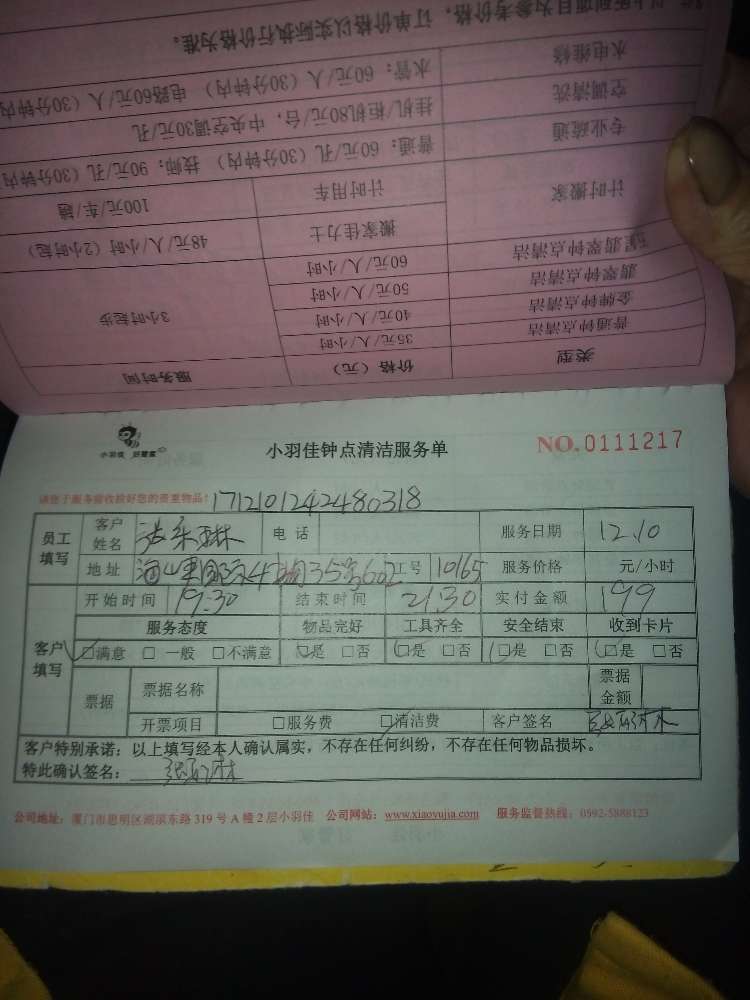 订单价格以实际执行价格为准。
水电维修 水管：60元/人（30分钟内） 电路60元/人（30分钟内
空调清洗 挂机/柜机80元/台，中央空调30元/孔
专业疏通 普通：60元/孔（30分钟内） 技师：90元/孔（30分钟内
计时搬家 计时用车 100元/车/趟
搬家佳力士 48元/人/小时（2小时起）
翡翠钟点清洁 60元/人/小时
翡翠钟点清洁 50元/人/小时 3小时起步
金牌钟点清洁 40元/人/小时
普通钟点清洁 35元/人/小时
类型 价格（元） 服务时间
小羽佳 好管家
小羽佳钟点清洁服务单 NO.0111217
请您于服务前收捡好您的贵重物品！ 1712101242480318
员工填写 客户姓名 琳 电话 服务日期 12.10
地址 35 602 工号 10165 服务价格 元/小时
客户填写 开始时间 19:30 结束时间 21:30 实付金额 199
服务态度 物品完好 工具齐全 安全结束 收到卡片
□满意 □一般 □不满意 □是 □否 □是 □否 □是 □否 □是 □否
票据 票据名称 票据金额
开票项目 □服务费 □清洁费 客户签名
客户特别承诺：以上填写经本人确认属实，不存在任何纠纷，不存在任何物品损坏。
特此确认签名：
公司地址：厦门市思明区湖滨东路 319 号 A 幢 2 层小羽佳 公司网站：www.xiaoyujia.com 服务监督热线：0592-5888123